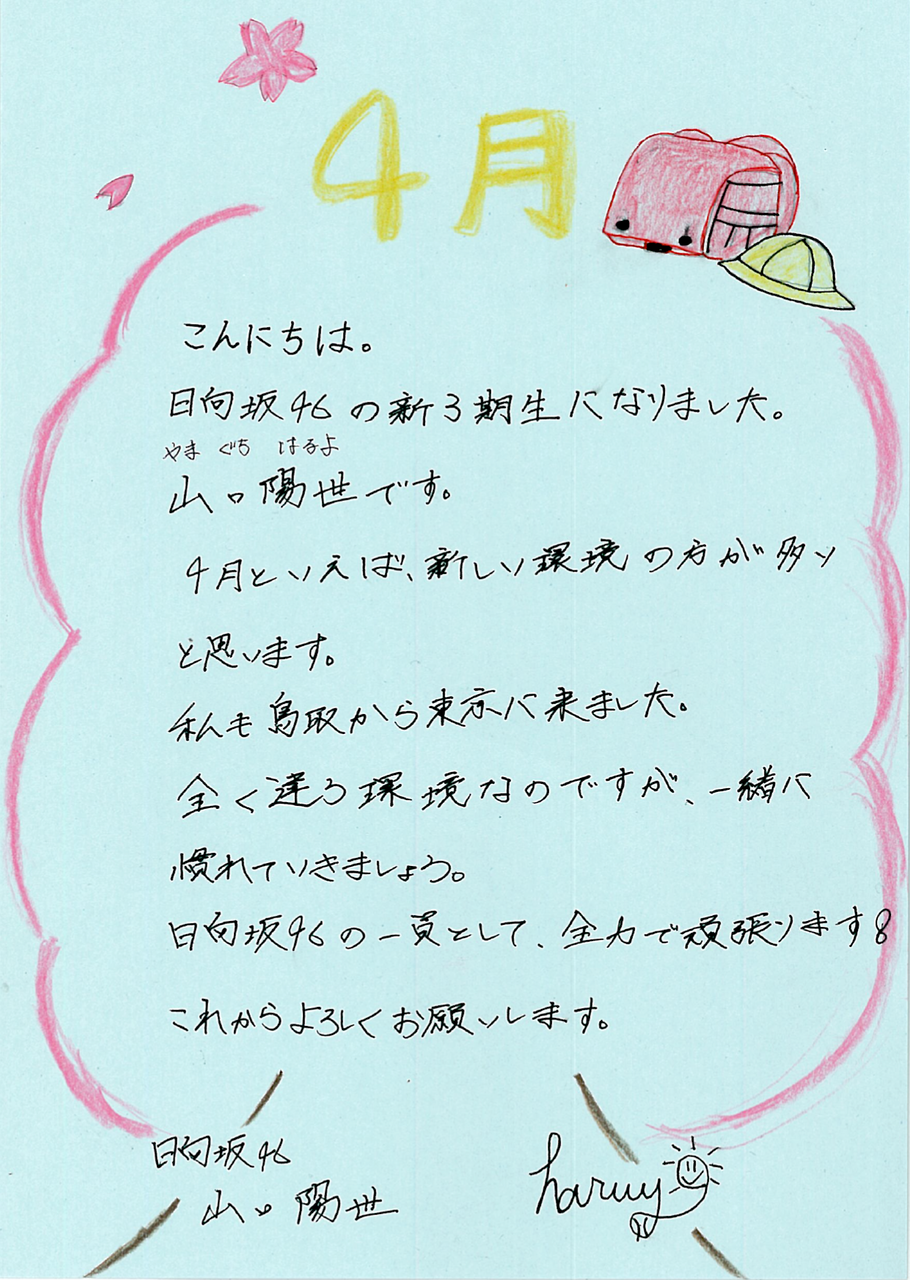 4月
こんにちは。
日向坂46の新3期生になりました。
やまぐち はるよ
山口陽世です。
4月といえば、新しい環境の方が多い
と思います。
私も鳥取から東京に来ました。
全く違う環境なのですが、一緒に
慣れていきましょう。
日向坂46の一員として、全力で頑張ります!
これからよろしくお願いします。
日向坂46
山口陽世
haruy